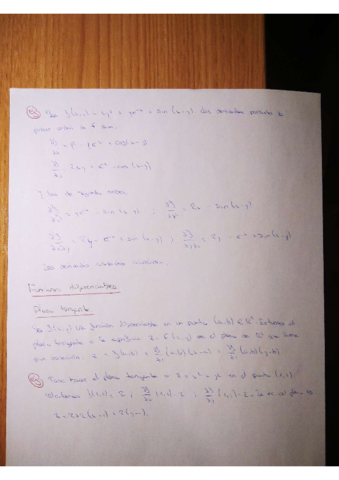 Ej Sea f(x,y) = xy² + ye⁻ˣ + sin(x-y). Las derivadas parciales de
primer orden de f son:
∂f/∂x = y² - ye⁻ˣ + cos(x-y)
∂f/∂y = 2xy + e⁻ˣ - cos(x-y)
y las de segundo orden
∂²f/∂x² = ye⁻ˣ - sin(x-y) ; ∂²f/∂y² = 2x - sin(x-y)
∂²f/∂x∂y = 2y - e⁻ˣ + sin(x-y) ; ∂²f/∂y∂x = 2y - e⁻ˣ + sin(x-y)
Las derivadas cruzadas
Funciones diferenciables
Plano tangente
Sea f(x,y) una función diferenciable en un punto (a,b) ∈ ℝ². Entonces el
plano tangente a la superficie z = f(x,y) es el plano de ℝ³ que tiene
por ecuación: z = f(a,b) + ∂f/∂x (a,b)(x-a) + ∂f/∂y (a,b)(y-b)
Ej el plano tangente a z = x² + y² en el punto (1,1)
f(1,1) = 2, ∂f/∂x (1,1) = 2 ; ∂f/∂y (1,1) = 2 el plano es
z = 2 + 2(x-1) + 2(y-1).